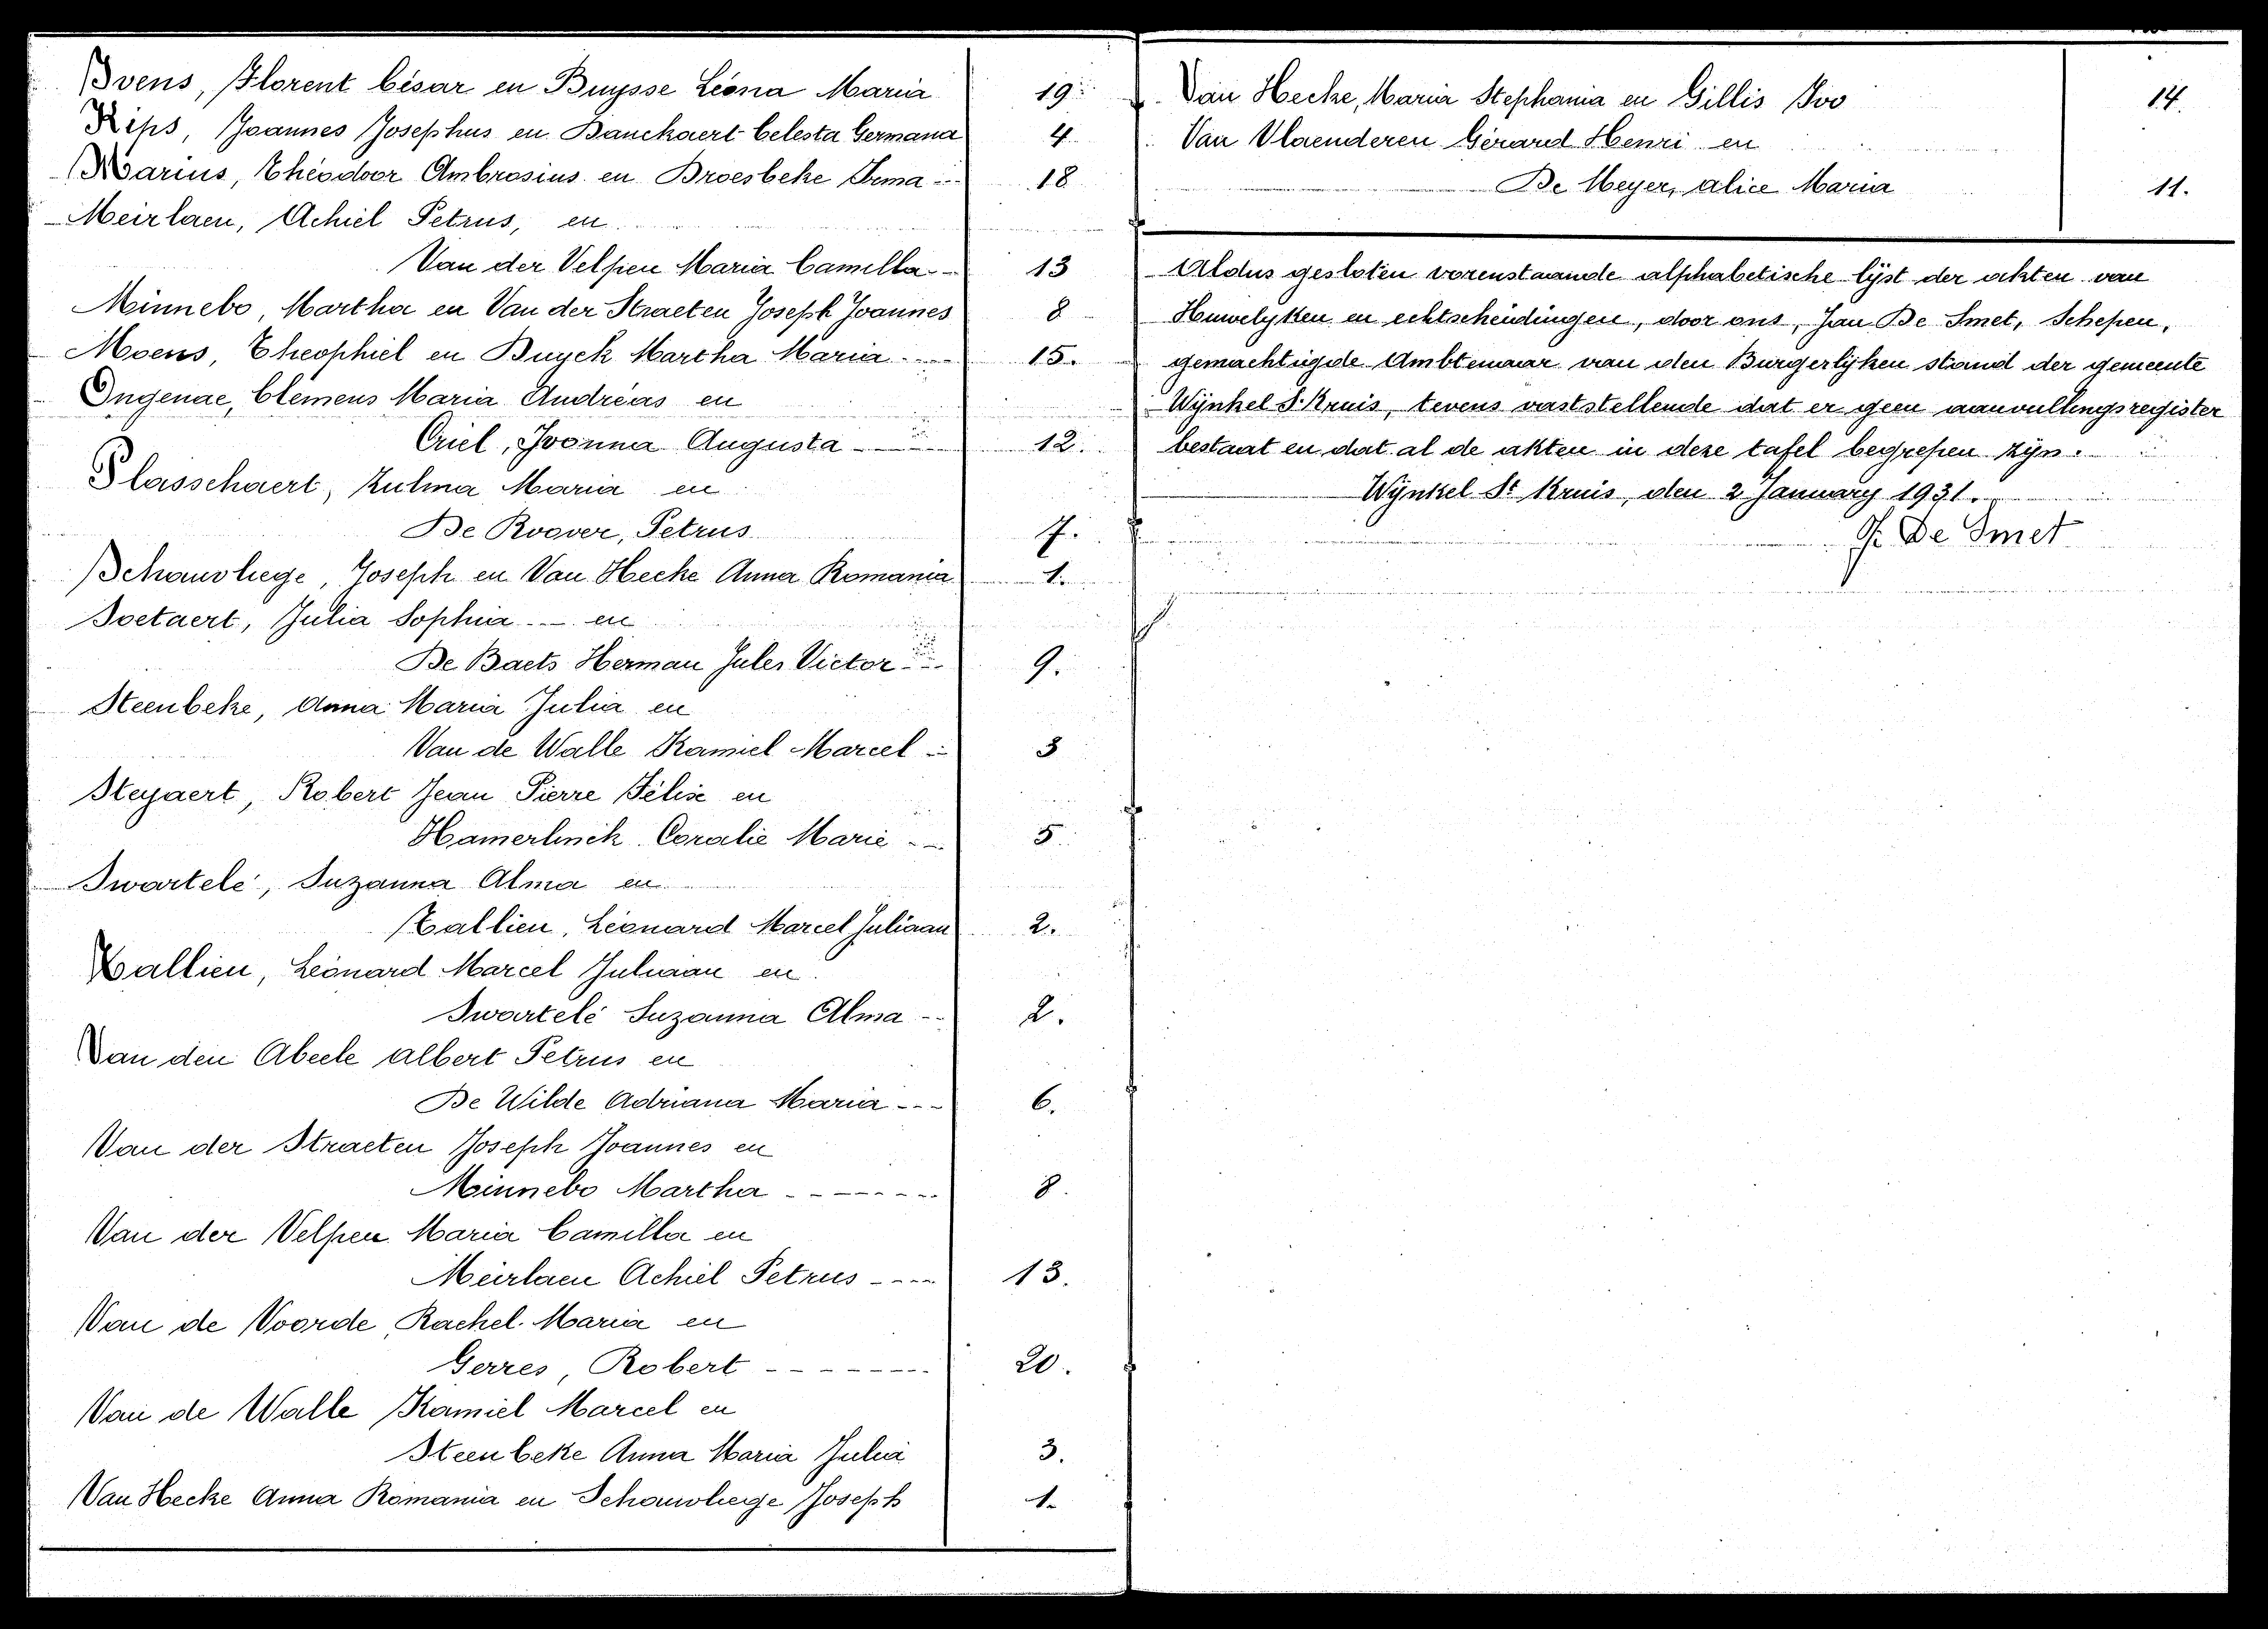 Ivens, Florent César en Buysse Léona Maria 19
Kips, Joannes Josephus en Banckaert Celesta Germana 4
Marius, Théodoor Ambrosius en Broesbeke Irma 18
Meirlaen, Achiel Petrus, en
Van der Velpen Maria Camilla 13
Minnebo, Martha en Van der Straeten Joseph Joannes 8
Moens, Theophiel en Buyck Martha Maria 15.
Ongenae, Clémens Maria Andréas en
Criel, Ivonna Augusta 12.
Plasschaert, Zulma Maria en
De Roover, Petrus 7.
Schauvliege, Joseph en Van Hecke Anna Romania 1.
Soetaert, Julia Sophia en
De Baets Herman Jules Victor 9.
Steenbeke, Anna Maria Julia en
Van de Walle Kamiel Marcel 3
Steyaert, Robert Jean Pierre Félise en
Hamerlinck Coralie Marie 5
Swartelé, Suzanna Alma en
Tallieu, Léonard Marcel Juliaan 2.
Tallieu, Léonard Marcel Juliaan en
Swartelé Suzanna Alma 2.
Van den Abeele Albert Petrus en
De Wilde Adriana Maria 6.
Van der Straeten Joseph Joannes en
Minnebo Martha 8.
Van der Velpen Maria Camilla en
Meirlaen Achiel Petrus 13.
Van de Voorde, Rachel Maria en
Gerres, Robert 20.
Van de Walle Kamiel Marcel en
Steenbeke Anna Maria Julia 3.
Van Hecke Anna Romania en Schauvliege Joseph 1.
Van Hecke, Maria Stephania en Gillis Ivo 14.
Van Vlaenderen Gérard Henri en
De Meyer, Alice Maria 11.
Aldus gesloten vorenstaande alphabetische lijst der akten van
Huwelyken en echtscheidingen, door ons, Jan De Smet, Schepen,
gemachtigde Ambtenaar van den Burgerlyken stand der gemeente
Wynkel St Kruis, tevens vaststellende dat er geen aanvullingsregister
bestaat en dat al de akten in deze tafel begrepen zyn.
Wynkel St Kruis, den 2 January 1931.
J. De Smet